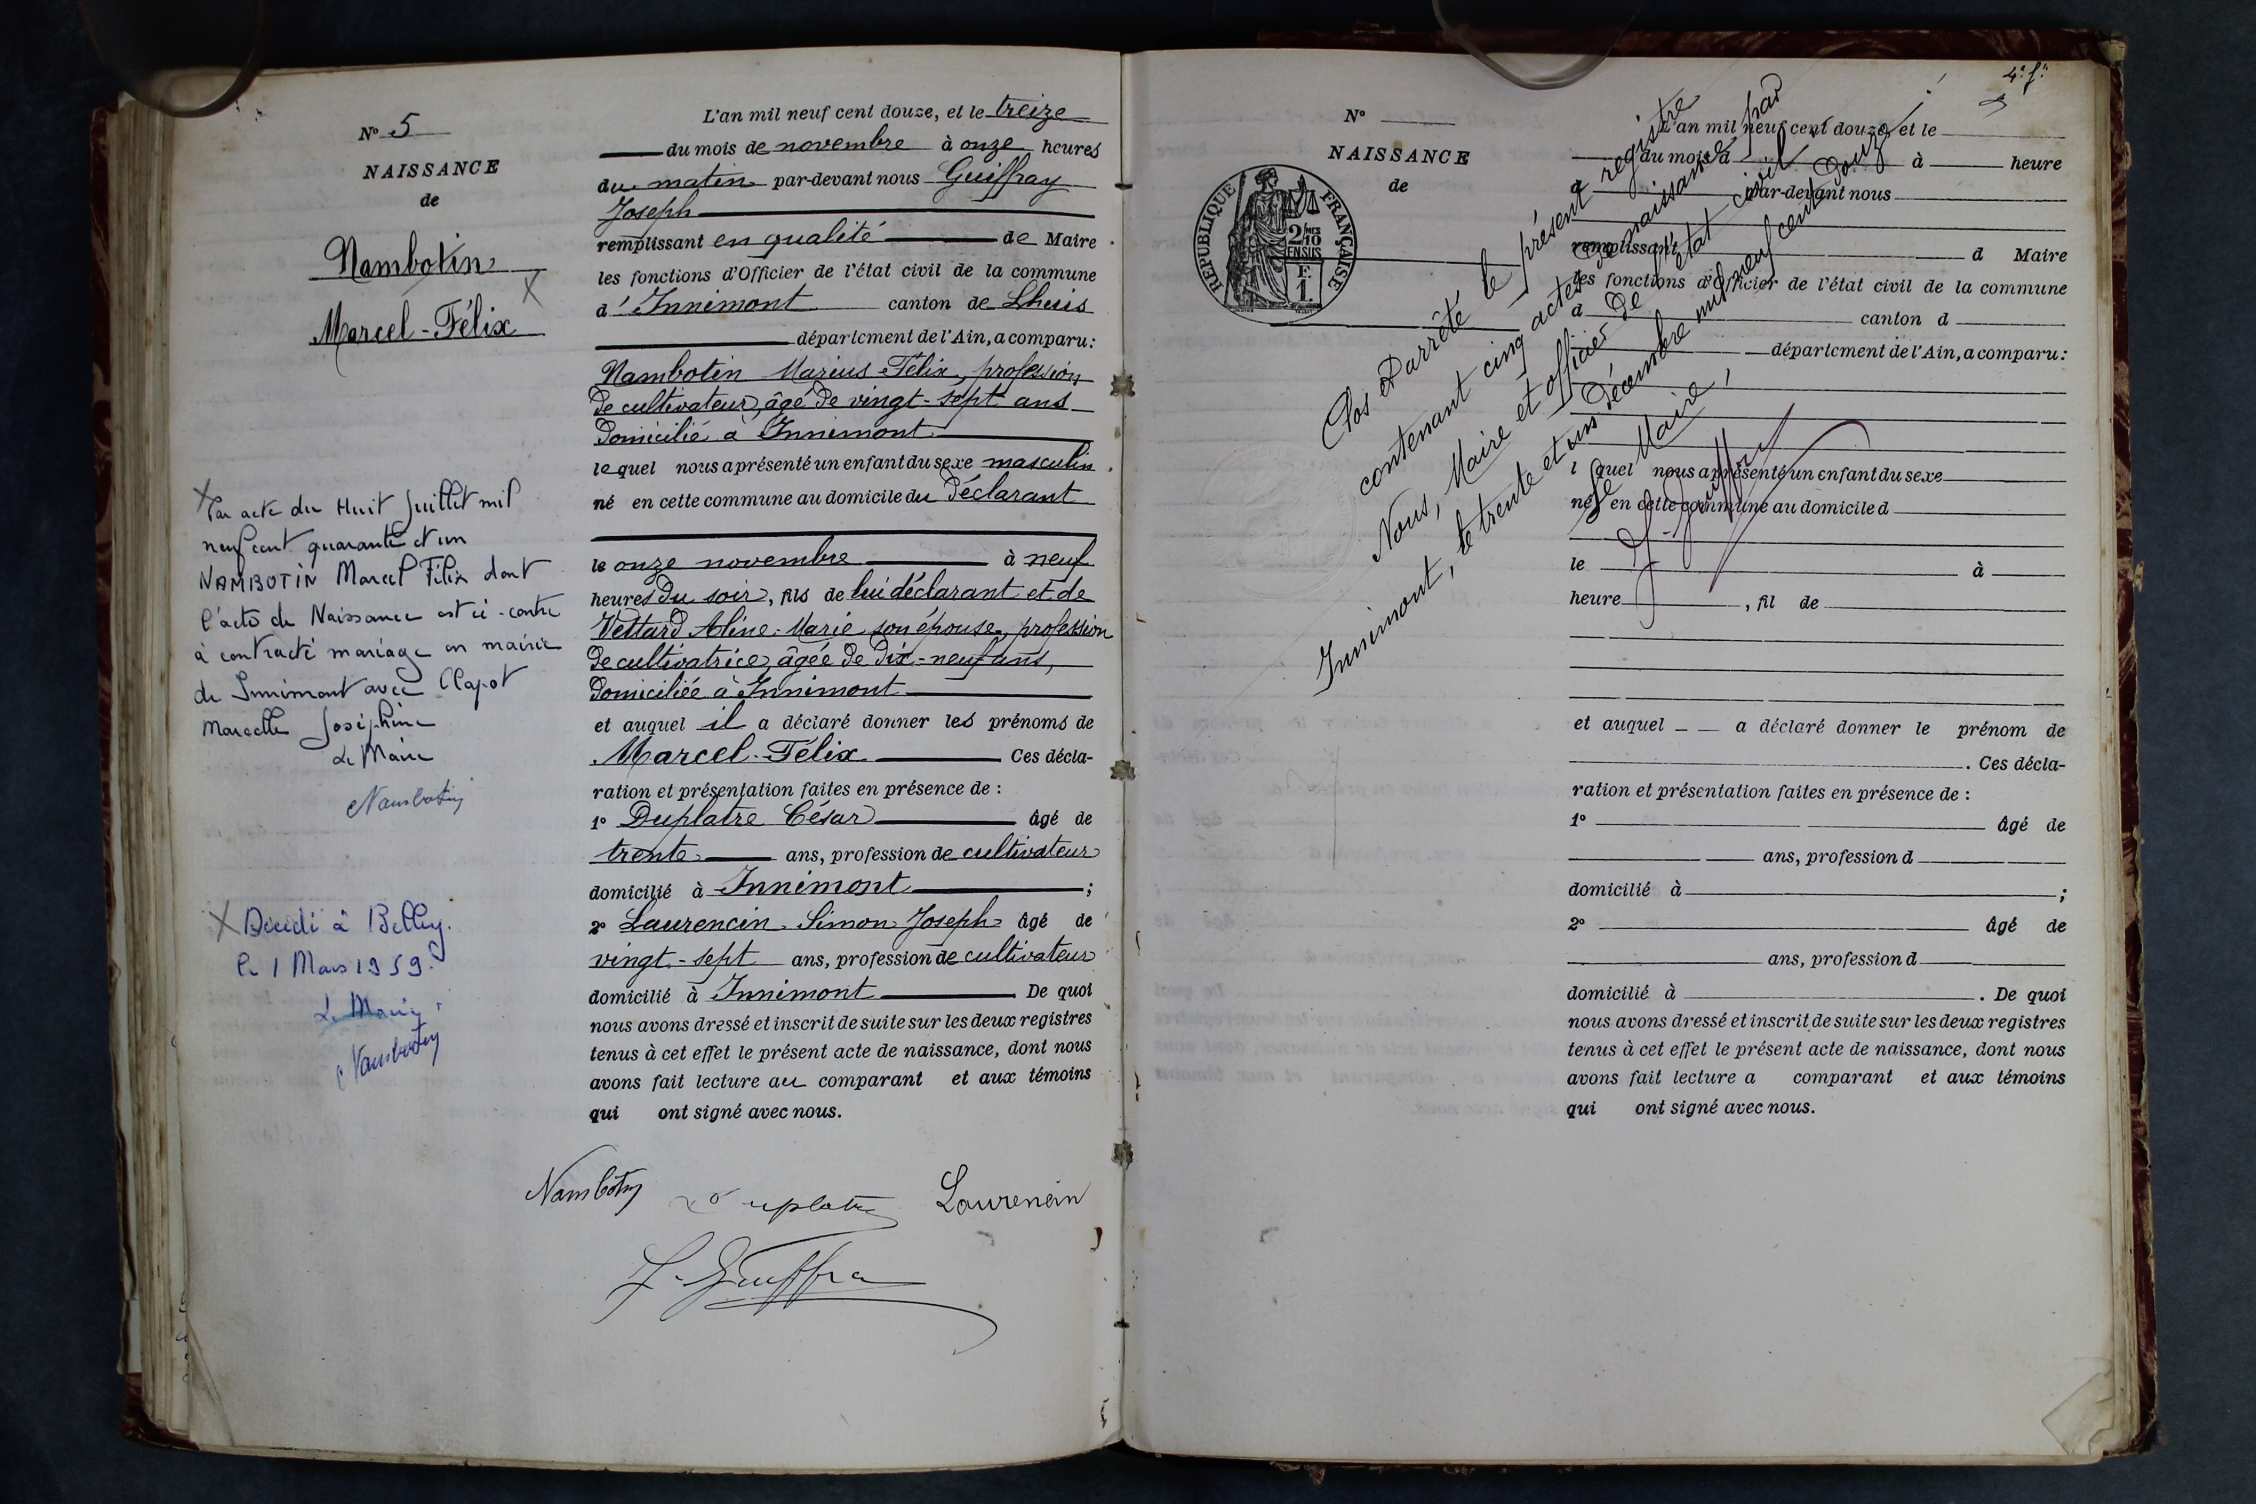 N° 5
NAISSANCE
de
Nambotin
Marcel-Félix
Par acte du Huit Juillet mil
neuf cent quarante et un
NAMBOTIN Marcel Félix dont
l'acte de Naissance est ci-contre
à contracté mariage en mairie
de Innimont avec Clapot
Marcelle Joséphine
Le Maire
Nambotin
Décédé à Belley.
le 1 Mars 1959.
Le Maire
Nambotin
L'an mil neuf cent douze, et le treize
du mois de novembre à onze heures
du matin par-devant nous Guiffray
Joseph
remplissant en qualité de Maire
les fonctions d'Officier de l'état civil de la commune
d'Innimont canton de Lhuis
département de l'Ain, a comparu:
Nambotin Marius-Félix, profession
de cultivateur, âgé de vingt-sept ans
domicilié à Innimont
lequel nous a présenté un enfant du sexe masculin
né en cette commune au domicile du déclarant
le onze novembre à neuf
heures du soir, fils de lui déclarant et de
Vettard Aline-Marie son épouse, profession
de cultivatrice, âgée de dix-neuf ans,
domiciliée à Innimont
et auquel il a déclaré donner les prénoms de
Marcel-Félix Ces décla-
ration et présentation faites en présence de :
1° Duplatre César âgé de
trente ans, profession de cultivateur
domicilié à Innimont ;
2° Laurencin Simon Joseph âgé de
vingt-sept ans, profession de cultivateur
domicilié à Innimont De quoi
nous avons dressé et inscrit de suite sur les deux registres
tenus à cet effet le présent acte de naissance, dont nous
avons fait lecture au comparant et aux témoins
qui ont signé avec nous.
Nambotin Duplatre Laurencin
J. Guiffra
4e f.
N°
NAISSANCE
de
REPUBLIQUE FRANÇAISE
2/10
EN SUS
F.
1.
Clos et arrêté le présent registre
contenant cinq actes de naissance par
Nous, Maire et officier de l'état civil
Innimont, le trente et un décembre mil neuf cent douze
Le Maire,
J. Guiffray
L'an mil neuf cent douze, et le
du mois d à heure
d par-devant nous
remplissant d Maire
les fonctions d'Officier de l'état civil de la commune
d canton d
département de l'Ain, a comparu:
l quel nous a présenté un enfant du sexe
né en cette commune au domicile d
le à
heure , fil de
et auquel a déclaré donner le prénom de
. Ces décla-
ration et présentation faites en présence de :
1° âgé de
ans, profession d
domicilié à ;
2° âgé de
ans, profession d
domicilié à . De quoi
nous avons dressé et inscrit de suite sur les deux registres
tenus à cet effet le présent acte de naissance, dont nous
avons fait lecture a comparant et aux témoins
qui ont signé avec nous.